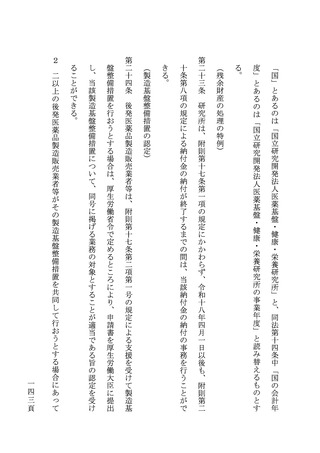 「国」とあるのは「国立研究開発法人医薬基盤・健康・栄養研究所」と、同法第十四条中「国の会計年
度」とあるのは「国立研究開発法人医薬基盤・健康・栄養研究所の事業年度」と読み替えるものとす
る。
（残余財産の処理の特例）
第二十三条　研究所は、附則第十七条第一項の規定にかかわらず、令和十八年四月一日以後も、附則第二
十条第八項の規定による納付金の納付が終了するまでの間は、当該納付金の納付の事務を行うことがで
きる。
（製造基盤整備措置の認定）
第二十四条　後発医薬品製造販売業者等は、附則第十七条第二項第一号の規定による支援を受けて製造基
盤整備措置を行おうとする場合は、厚生労働省令で定めるところにより、申請書を厚生労働大臣に提出
し、当該製造基盤整備措置について、同号に掲げる業務の対象とすることが適当である旨の認定を受け
ることができる。
２　二以上の後発医薬品製造販売業者等がその製造基盤整備措置を共同して行おうとする場合にあって
一四三頁